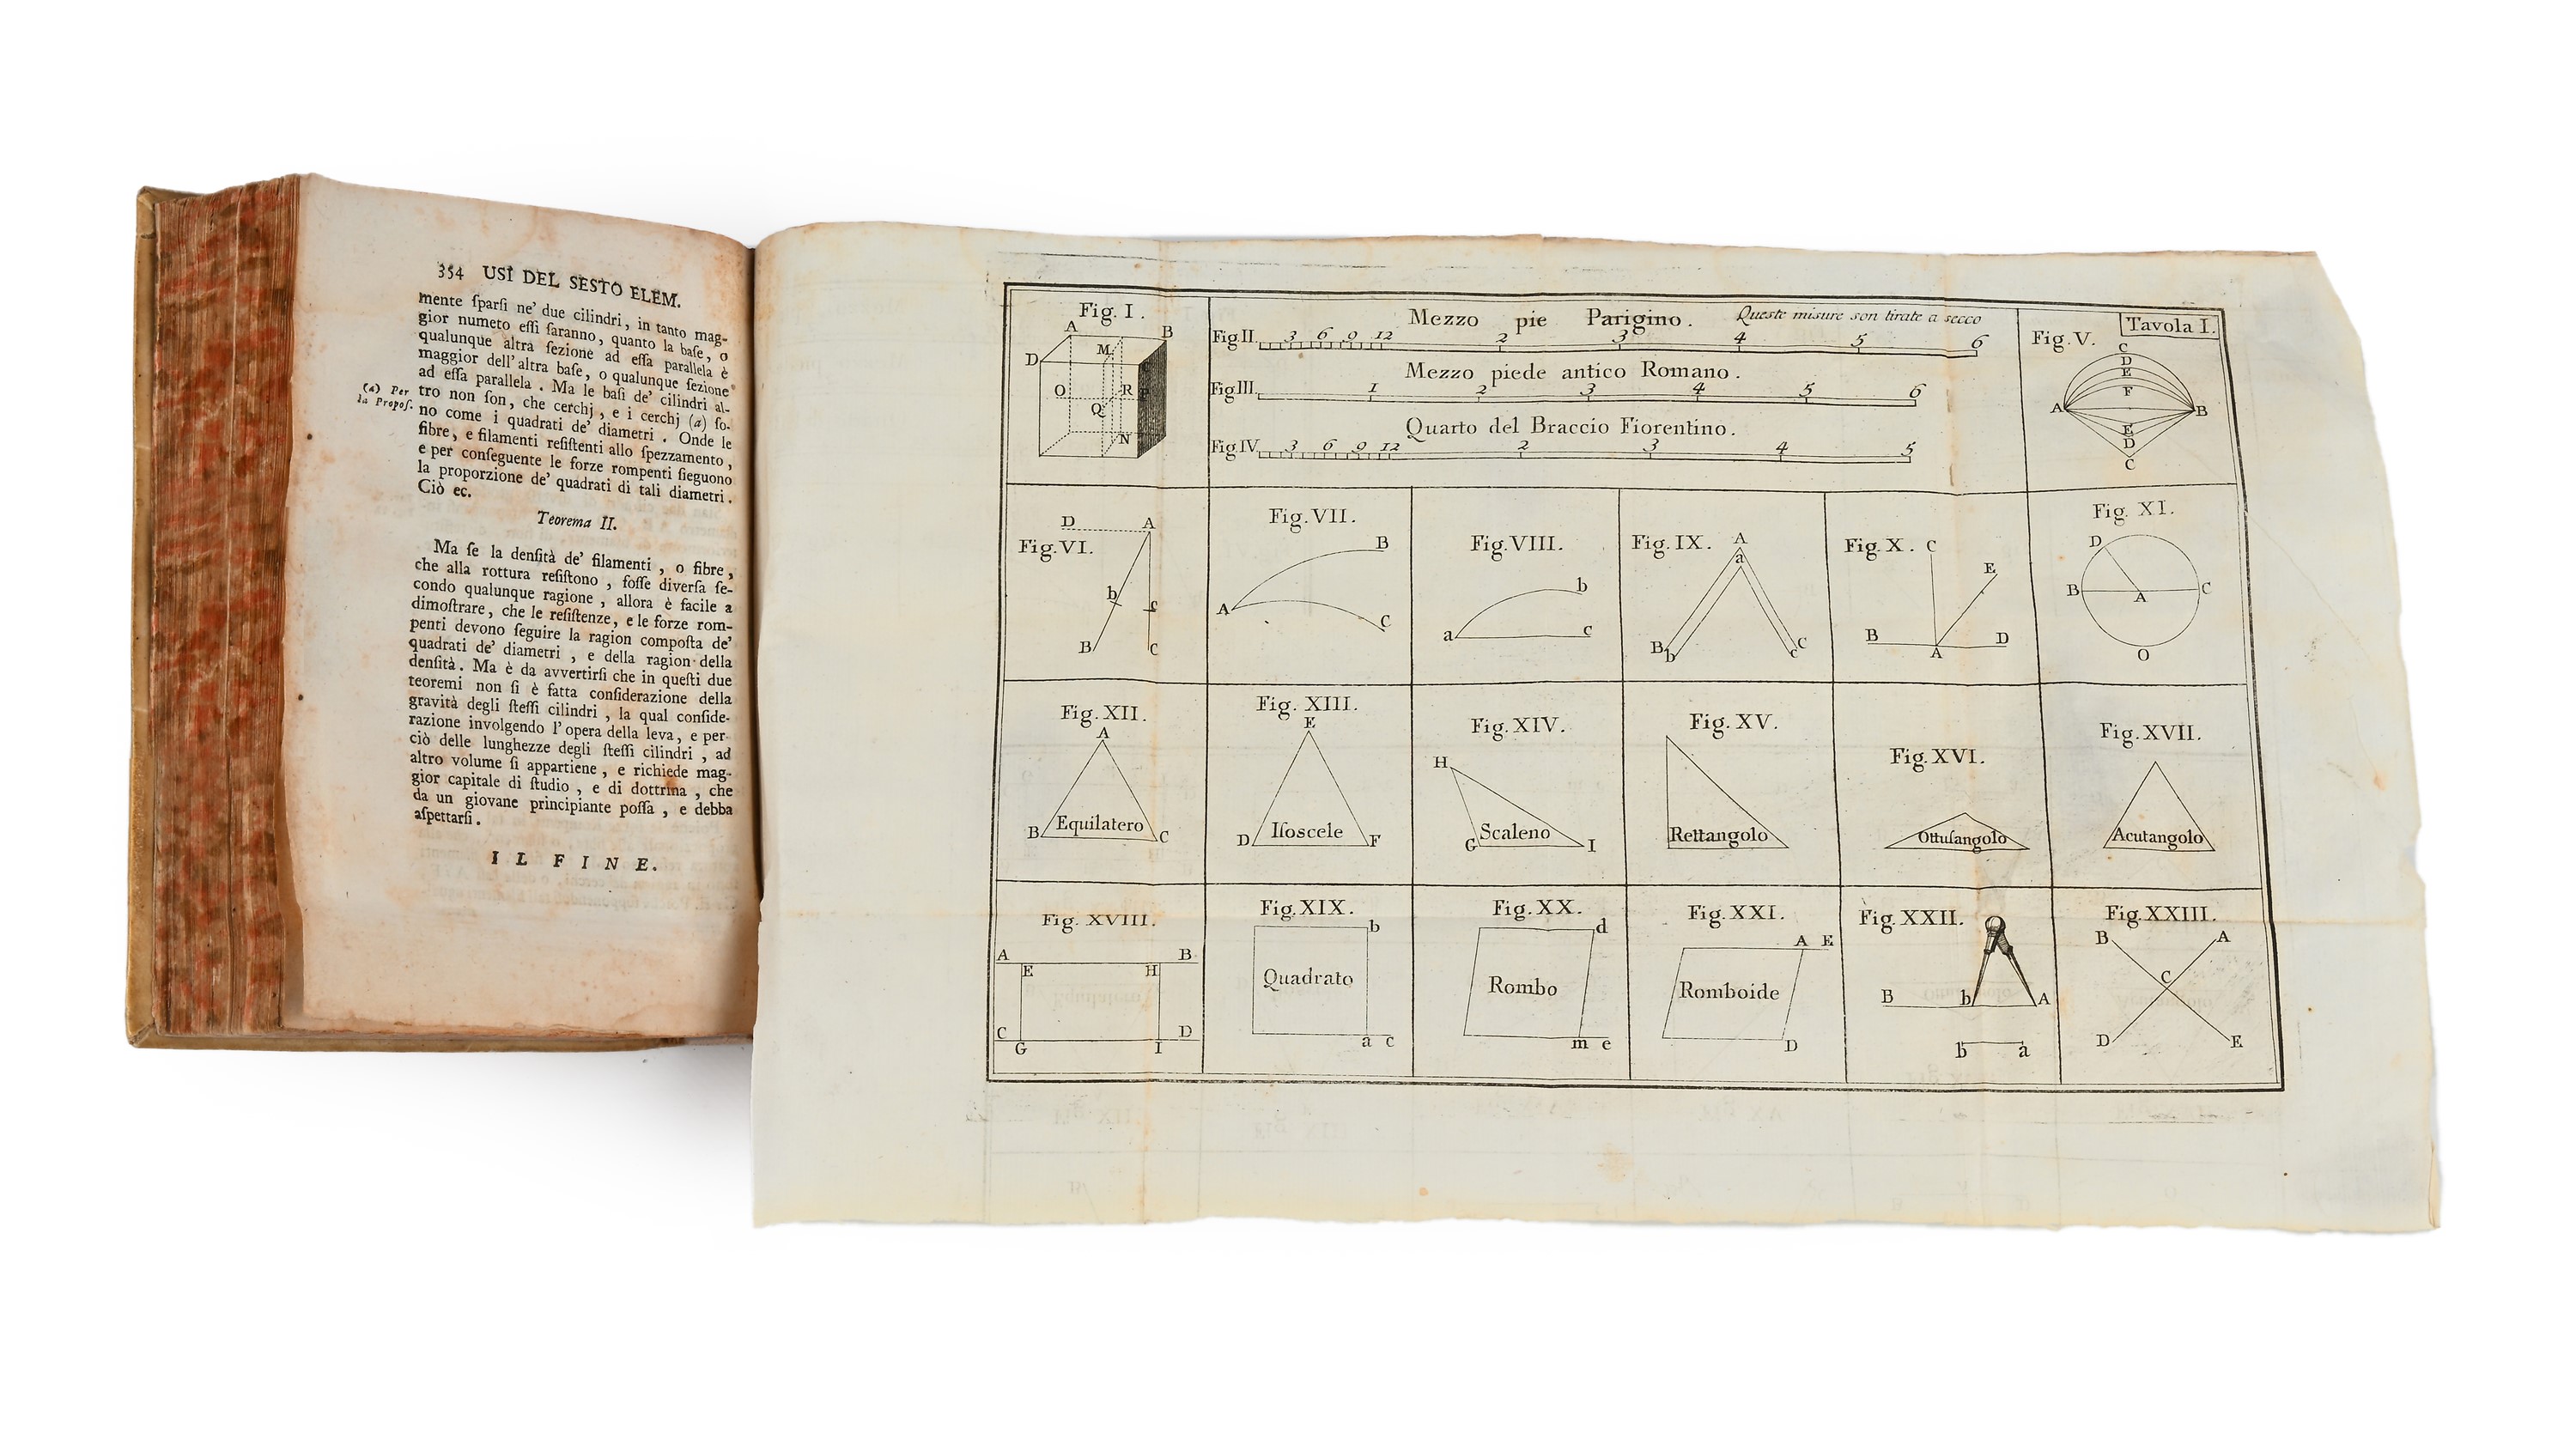 354 USI DEL SESTO ELEM.
mente ſparſi ne' due cilindri, in tanto mag-
gior numeto eſſi ſaranno, quanto la baſe, o
qualunque altra ſezione ad eſſa parallela è
maggior dell' altra baſe, o qualunque ſezione
ad eſſa parallela. Ma le baſi de' cilindri al-
(a) Per
la Propoſ.
tro non ſon, che cerchj, e i cerchj (a) ſo-
no come i quadrati de' diametri. Onde le
fibre, e filamenti reſiſtenti allo ſpezzamento,
e per conſeguente le forze rompenti ſieguono
la proporzione de' quadrati di tali diametri.
Ciò ec.
Teorema II.
Ma ſe la denſità de' filamenti, o fibre,
che alla rottura reſiſtono, foſſe diverſa ſe-
condo qualunque ragione, allora è facile a
dimoſtrare, che le reſiſtenze, e le forze rom-
penti devono ſeguire la ragion compoſta de'
quadrati de' diametri, e della ragion della
denſità. Ma è da avvertirſi che in queſti due
teoremi non ſi è fatta conſiderazione della
gravità degli ſteſſi cilindri, la qual conſide-
razione involgendo l' opera della leva, e per
ciò delle lunghezze degli ſteſſi cilindri, ad
altro volume ſi appartiene, e richiede mag-
gior capitale di ſtudio, e di dottrina, che
da un giovane principiante poſſa, e debba
aſpettarſi.
IL FINE.
Tavola I.
Fig. I.
A B
D M
O R P
Q
N
Mezzo pie Parigino. Queste misure son tirate a secco
Fig. II. 3 6 9 12 2 3 4 5 6
Mezzo piede antico Romano.
Fig. III. 1 2 3 4 5 6
Quarto del Braccio Fiorentino.
Fig. IV. 3 6 9 12 2 3 4 5
Fig. V.
C
D
E
F
A B
E
D
C
Fig. VI.
D A
b c
B C
Fig. VII.
B
A
C
Fig. VIII.
b
a c
Fig. IX.
A
a
B b C c
Fig. X.
C
E
B A D
Fig. XI.
D
B A C
O
Fig. XII.
A
B Equilatero C
Fig. XIII.
E
D Iſoscele F
Fig. XIV.
H
G Scaleno I
Fig. XV.
Rettangolo
Fig. XVI.
Ottuſangolo
Fig. XVII.
Acutangolo
Fig. XVIII.
A B
E H
C D
G I
Fig. XIX.
b
Quadrato
a c
Fig. XX.
d
Rombo
m e
Fig. XXI.
A E
Romboide
D
Fig. XXII.
B b A
b a
Fig. XXIII.
B A
C
D E